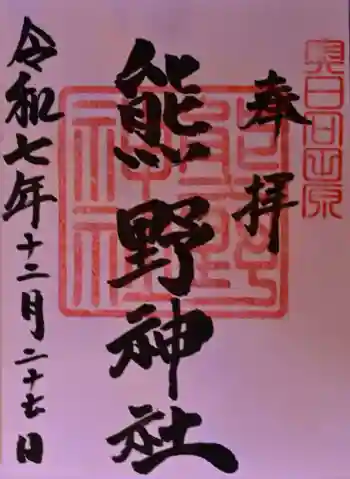 奉拝
熊野神社
熊野
神社
令和七年十二月二十七日